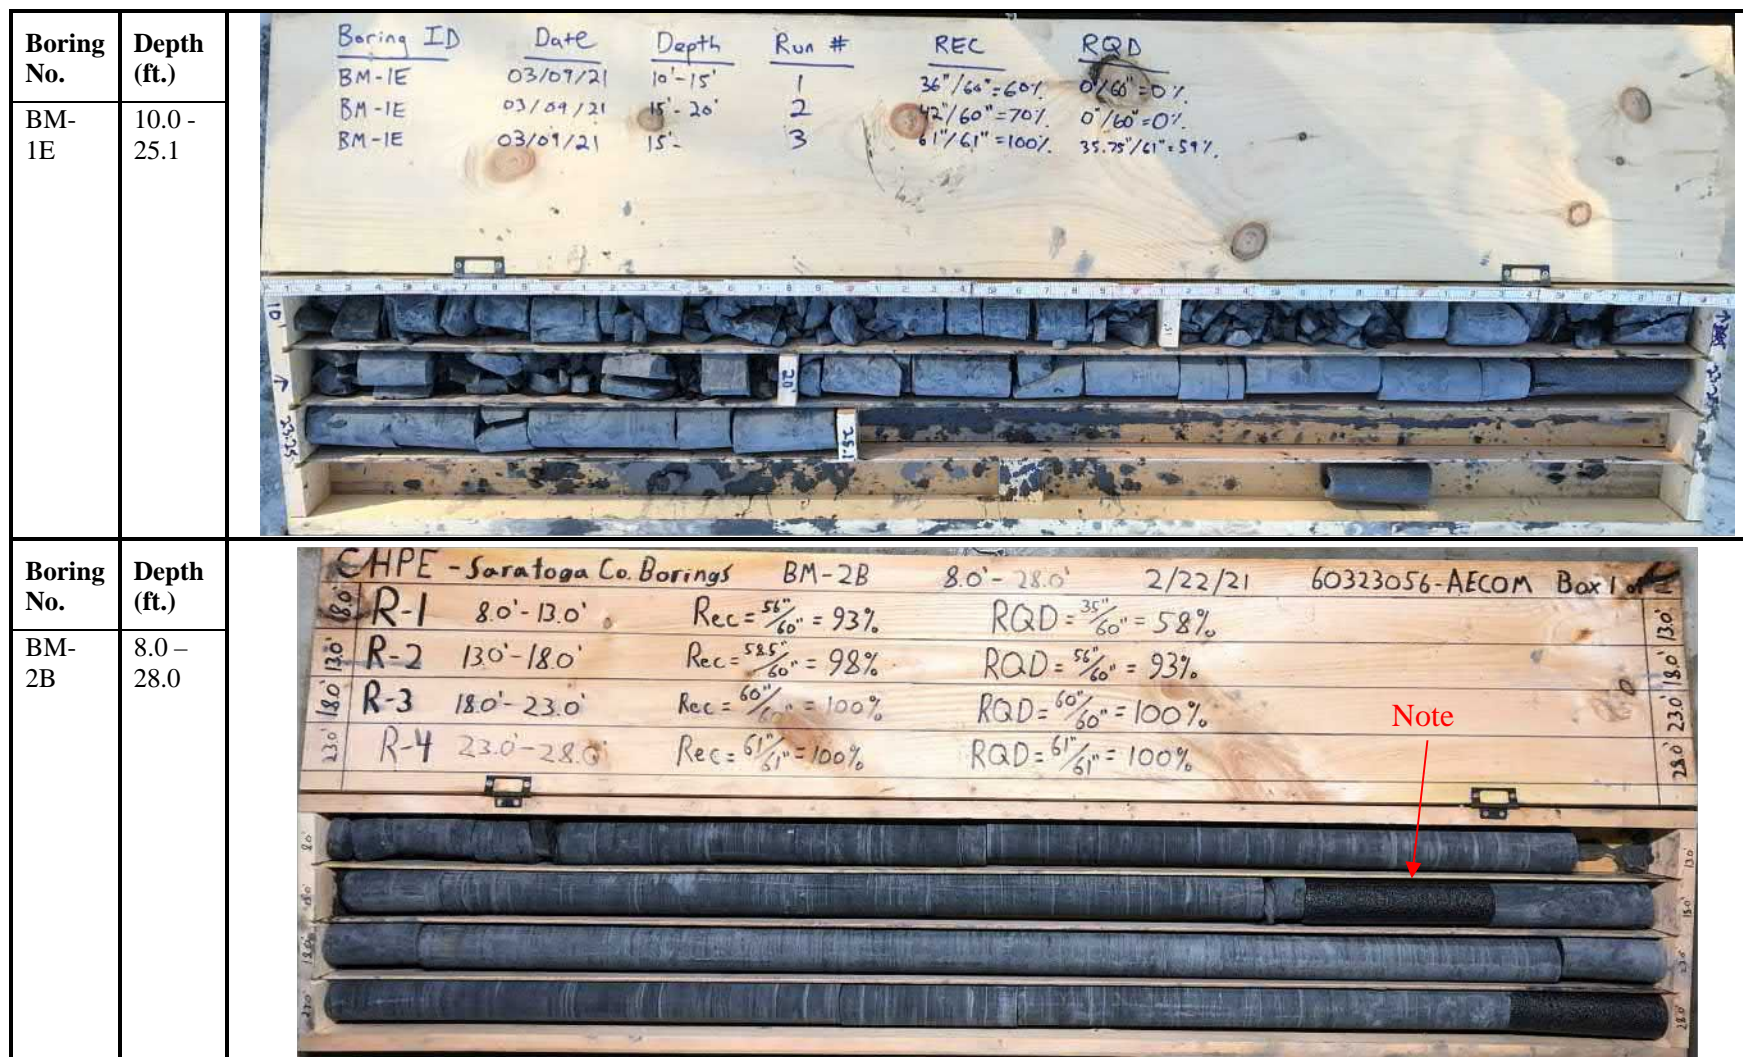 Boring No.
Depth (ft.)
BM-1E
10.0 - 25.1
Boring ID Date Depth Run # REC RQD
BM-1E 03/09/21 10'-15' 1 36"/60"=60% 0"/60"=0%
BM-1E 03/09/21 15'-20' 2 42"/60"=70% 0"/60"=0%
BM-1E 03/09/21 15'- 3 61"/61"=100% 35.75"/61"=59%
10'
15'
20'
23.25
25.1
Boring No.
Depth (ft.)
BM-2B
8.0 – 28.0
CHPE - Saratoga Co. Borings BM-2B 8.0'-28.0' 2/22/21 60323056-AECOM Box 1 of
18.0' R-1 8.0'-13.0' Rec = 56"/60" = 93% RQD = 35"/60" = 58% 13.0'
13.0' R-2 13.0'-18.0' Rec = 58.5"/60" = 98% RQD = 56"/60" = 93% 18.0'
18.0' R-3 18.0'-23.0' Rec = 60"/60" = 100% RQD = 60"/60" = 100% 23.0'
23.0' R-4 23.0'-28.0' Rec = 61"/61" = 100% RQD = 61"/61" = 100% 28.0'
Note
8.0'
13.0'
18.0'
18.0'
23.0'
28.0'